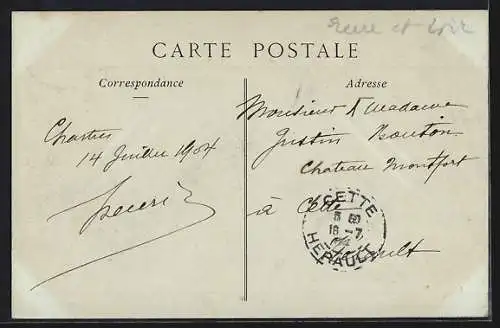 Eure et Loir
CARTE POSTALE
Correspondance
Adresse
Chartres
14 Juillet 1904
Monsieur & Madame
Justin Bouton
Chateau Montfort
à Cette
Hérault
CETTE
18 -7
HERAULT